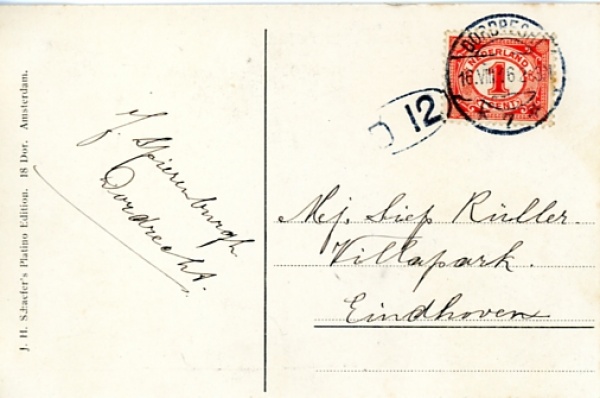 J. H. Schaefer's Platino Edition. 18 Dor. Amsterdam.
J. Spierenburgh
Dordrecht.
D 12
DORDRECHT
16.VIII 6
7
NEDERLAND
1
CENT
Mej. Diep Rüller.
Villapark.
Eindhoven